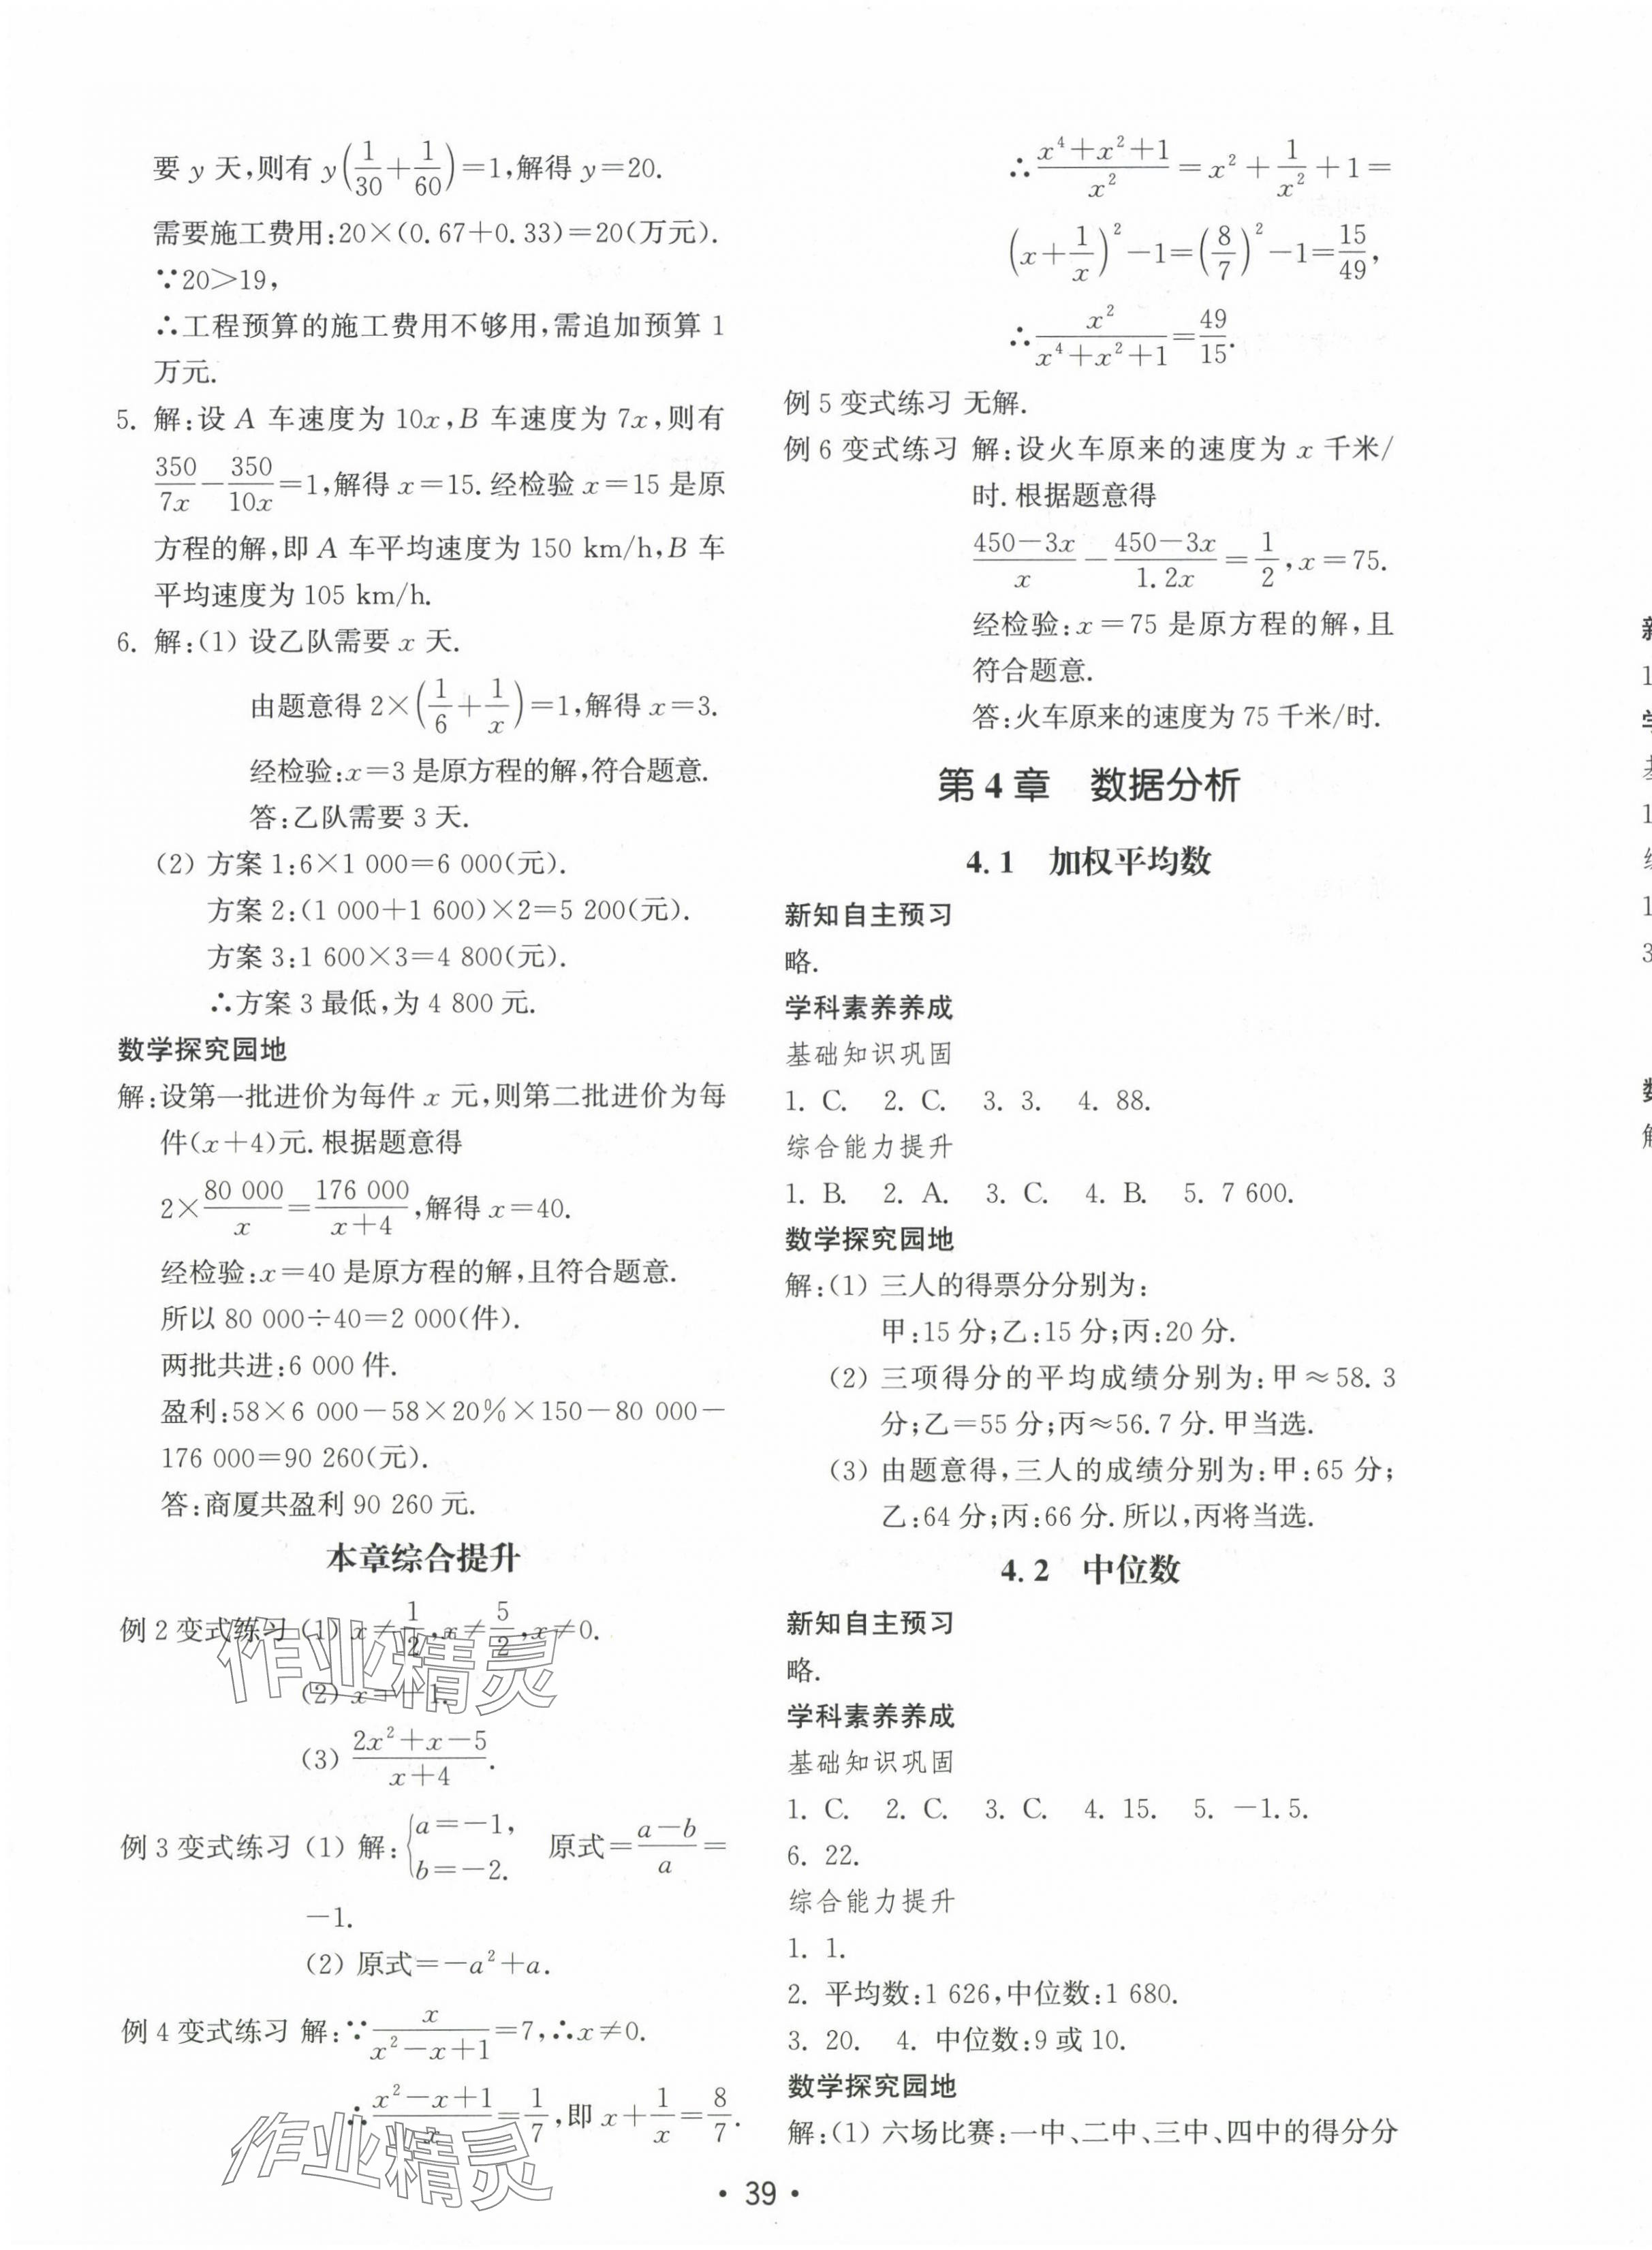 要 y 天,则有 y(1/30+1/60)=1,解得 y=20.
需要施工费用:20×(0.67+0.33)=20(万元).
∵20>19,
∴工程预算的施工费用不够用,需追加预算 1
万元.
5. 解:设 A 车速度为 10x,B 车速度为 7x,则有
350/7x−350/10x=1,解得 x=15. 经检验 x=15 是原
方程的解,即 A 车平均速度为 150 km/h,B 车
平均速度为 105 km/h.
6. 解:(1) 设乙队需要 x 天.
由题意得 2×(1/6+1/x)=1,解得 x=3.
经检验:x=3 是原方程的解,符合题意.
答:乙队需要 3 天.
(2) 方案 1:6×1 000=6 000(元).
方案 2:(1 000+1 600)×2=5 200(元).
方案 3:1 600×3=4 800(元).
∴方案 3 最低,为 4 800 元.
数学探究园地
解:设第一批进价为每件 x 元,则第二批进价为每
件(x+4)元. 根据题意得
2×80 000/x=176 000/(x+4),解得 x=40.
经检验:x=40 是原方程的解,且符合题意.
所以 80 000÷40=2 000(件).
两批共进:6 000 件.
盈利:58×6 000−58×20%×150−80 000−
176 000=90 260(元).
答:商厦共盈利 90 260 元.
本章综合提升
例 2 变式练习 (1) x≠1/2,x≠5/2,x≠0.
(2) x=−1.
(3) (2x²+x−5)/(x+4).
例 3 变式练习 (1) 解:{a=−1, b=−2. 原式=(a−b)/a=
−1.
(2) 原式=−a²+a.
例 4 变式练习 解:∵x/(x²−x+1)=7,∴x≠0.
∴(x²−x+1)/x=1/7,即 x+1/x=8/7.
∴(x⁴+x²+1)/x²=x²+1/x²+1=
(x+1/x)²−1=(8/7)²−1=15/49,
∴x²/(x⁴+x²+1)=49/15.
例 5 变式练习 无解.
例 6 变式练习 解:设火车原来的速度为 x 千米/
时. 根据题意得
(450−3x)/x−(450−3x)/1.2x=1/2,x=75.
经检验:x=75 是原方程的解,且
符合题意.
答:火车原来的速度为 75 千米/时.
第 4 章 数据分析
4.1 加权平均数
新知自主预习
略.
学科素养养成
基础知识巩固
1. C. 2. C. 3. 3. 4. 88.
综合能力提升
1. B. 2. A. 3. C. 4. B. 5. 7 600.
数学探究园地
解:(1) 三人的得票分分别为:
甲:15 分;乙:15 分;丙:20 分.
(2) 三项得分的平均成绩分别为:甲≈58.3
分;乙=55 分;丙≈56.7 分. 甲当选.
(3) 由题意得,三人的成绩分别为:甲:65 分;
乙:64 分;丙:66 分. 所以,丙将当选.
4.2 中位数
新知自主预习
略.
学科素养养成
基础知识巩固
1. C. 2. C. 3. C. 4. 15. 5. −1.5.
6. 22.
综合能力提升
1. 1.
2. 平均数:1 626,中位数:1 680.
3. 20. 4. 中位数:9 或 10.
数学探究园地
解:(1) 六场比赛:一中、二中、三中、四中的得分分
• 39 •
作业精灵
作业精灵